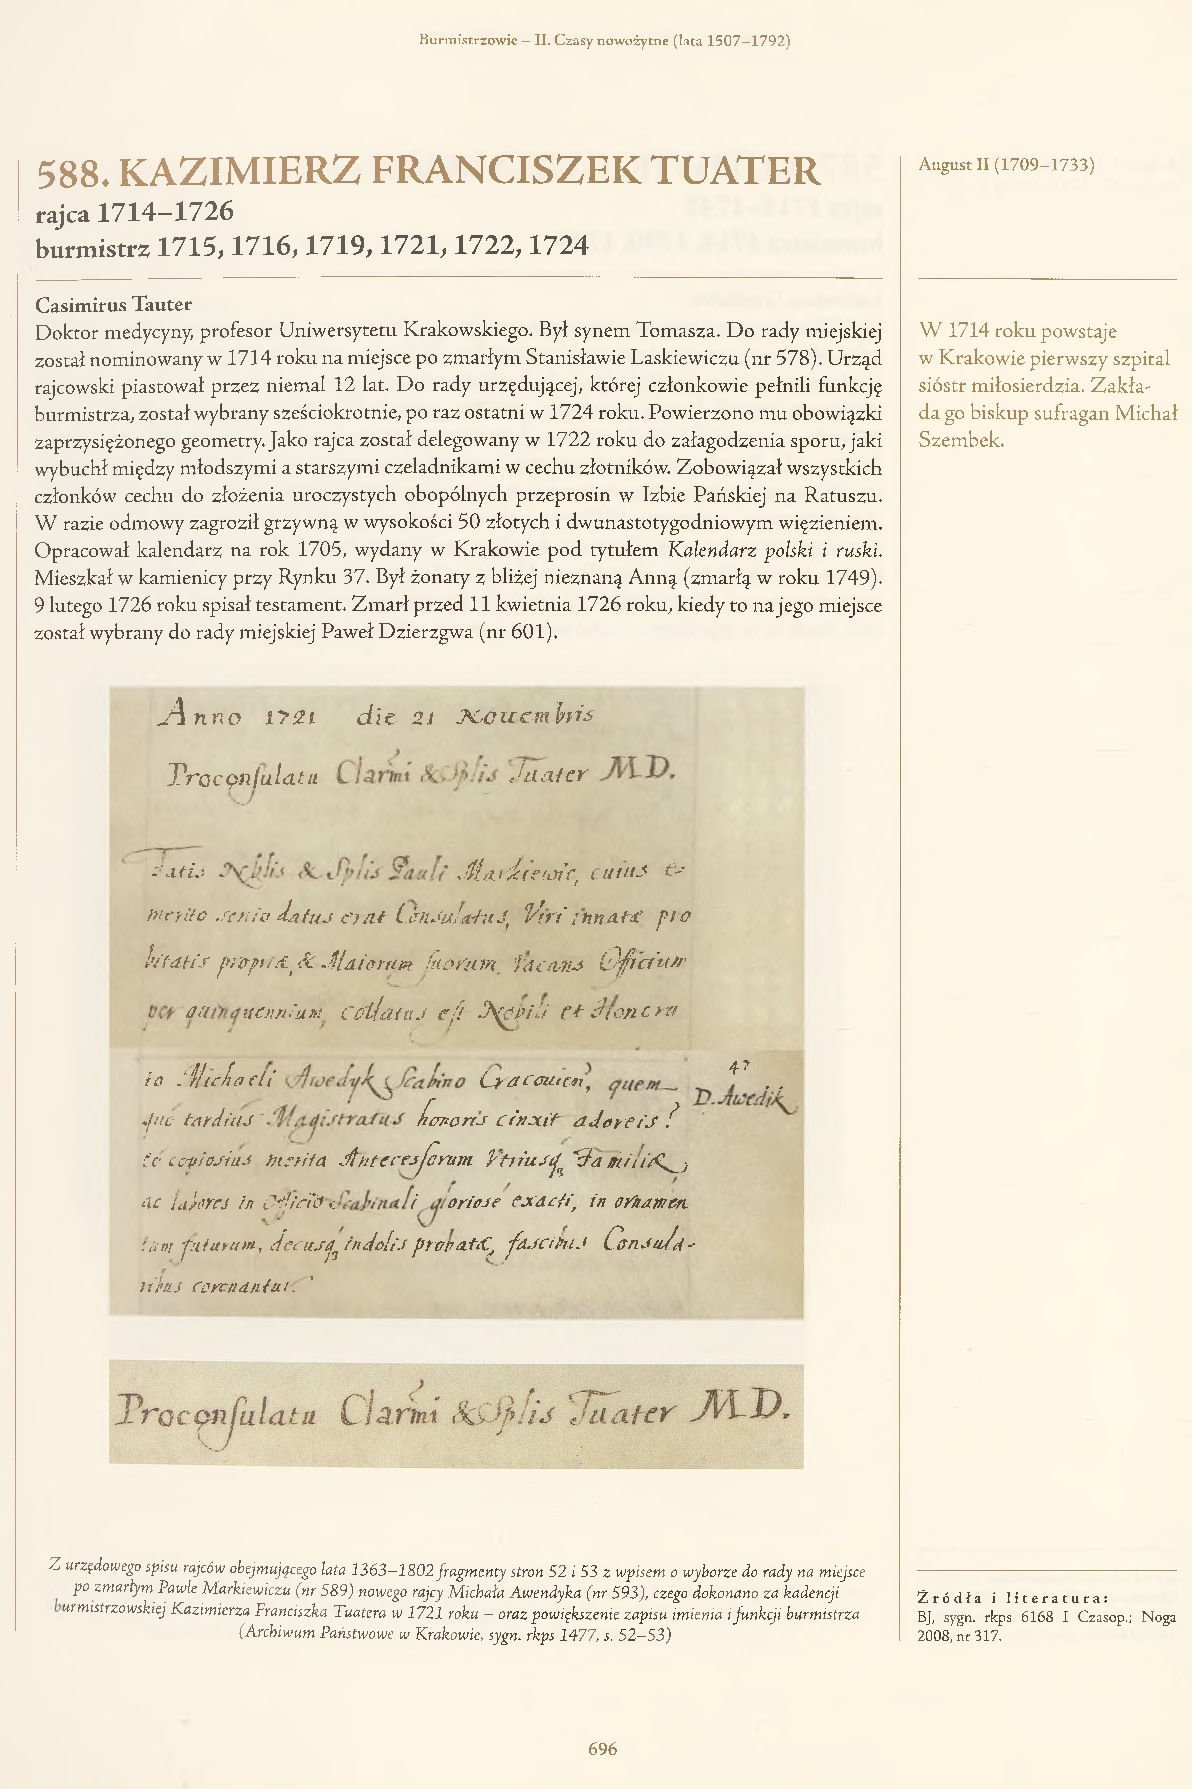 Burmistrzowie – II. Czasy nowożytne (lata 1507–1792)
588. KAZIMIERZ FRANCISZEK TUATER
rajca 1714–1726
burmistrz 1715, 1716, 1719, 1721, 1722, 1724
Casimirus Tauter
Doktor medycyny, profesor Uniwersytetu Krakowskiego. Był synem Tomasza. Do rady miejskiej
został nominowany w 1714 roku na miejsce po zmarłym Stanisławie Laskiewiczu (nr 578). Urząd
rajcowski piastował przez niemal 12 lat. Do rady urzędującej, której członkowie pełnili funkcję
burmistrza, został wybrany sześciokrotnie, po raz ostatni w 1724 roku. Powierzono mu obowiązki
zaprzysiężonego geometry. Jako rajca został delegowany w 1722 roku do załagodzenia sporu, jaki
wybuchł między młodszymi a starszymi czeladnikami w cechu złotników. Zobowiązał wszystkich
członków cechu do złożenia uroczystych obopólnych przeprosin w Izbie Pańskiej na Ratuszu.
W razie odmowy zagroził grzywną w wysokości 50 złotych i dwunastotygodniowym więzieniem.
Opracował kalendarz na rok 1705, wydany w Krakowie pod tytułem Kalendarz polski i ruski.
Mieszkał w kamienicy przy Rynku 37. Był żonaty z bliżej nieznaną Anną (zmarłą w roku 1749).
9 lutego 1726 roku spisał testament. Zmarł przed 11 kwietnia 1726 roku, kiedy to na jego miejsce
został wybrany do rady miejskiej Paweł Dzierzgwa (nr 601).
August II (1709–1733)
W 1714 roku powstaje
w Krakowie pierwszy szpital
sióstr miłosierdzia. Zakła-
da go biskup sufragan Michał
Szembek.
Anno 1721 die 21 Nouembris
Proconsulatu Clarmi & Splis Tuater M.D.
Fatis Nobilis & Splis Pauli Markiewic, cuius e-
merito senio datus erat Consulatus, Viri innatæ pro
bitatis propriæ, & Maiorum suorum, vacans Officium
per quinquennium, collatus est Nobili et Honora
to Michaeli Awedyk Scabino Cracouien, quem
47
D. Awedik
quo tardius Magistratus honoris cinxit adoreis
eo copiosius merita Antecessorum Vtriusq Familiæ,
ac labores in Officio Scabinali gloriose exacti, in ornamen
tum futurum, decusq indolis probatæ, fascibus Consula-
ribus coronantur.
Proconsulatu Clarmi & Splis Tuater M.D.
Z urzędowego spisu rajców obejmującego lata 1363–1802 fragmenty stron 52 i 53 z wpisem o wyborze do rady na miejsce
po zmarłym Pawle Markiewiczu (nr 589) nowego rajcy Michała Awendyka (nr 593), czego dokonano za kadencji
burmistrzowskiej Kazimierza Franciszka Tuatera w 1721 roku – oraz powiększenie zapisu imienia i funkcji burmistrza
(Archiwum Państwowe w Krakowie, sygn. rkps 1477, s. 52–53)
Źródła i literatura:
BJ, sygn. rkps 6168 I Czasop.; Noga
2008, nr 317.
696